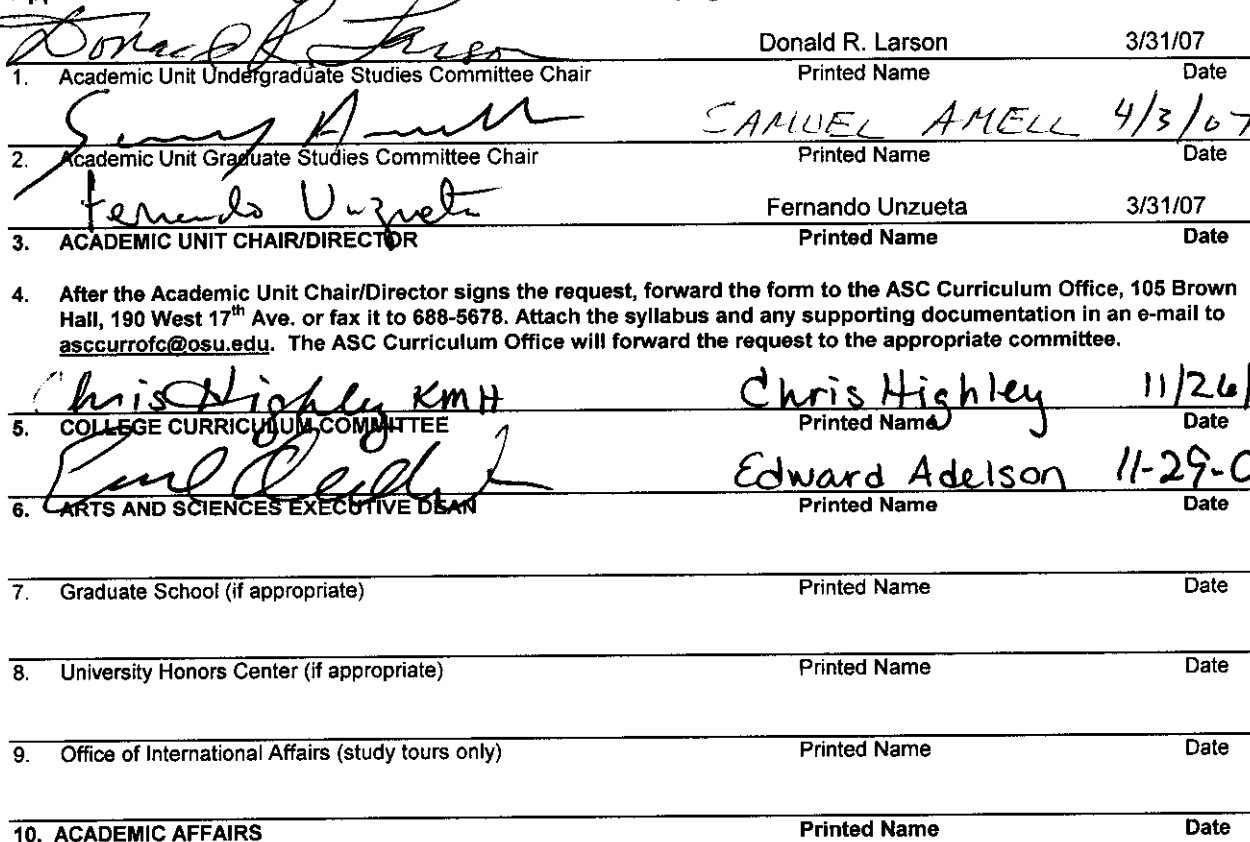 Donald R Larson Donald R. Larson 3/31/07
1. Academic Unit Undergraduate Studies Committee Chair Printed Name Date
SAMUEL AMELL 4/3/07
2. Academic Unit Graduate Studies Committee Chair Printed Name Date
Fernando Unzueta Fernando Unzueta 3/31/07
3. ACADEMIC UNIT CHAIR/DIRECTOR Printed Name Date
4. After the Academic Unit Chair/Director signs the request, forward the form to the ASC Curriculum Office, 105 Brown
Hall, 190 West 17th Ave. or fax it to 688-5678. Attach the syllabus and any supporting documentation in an e-mail to
asccurrofc@osu.edu. The ASC Curriculum Office will forward the request to the appropriate committee.
Chris Highley KMH Chris Highley 11/26/
5. COLLEGE CURRICULUM COMMITTEE Printed Name Date
Edward Adelson 11-29-0
6. ARTS AND SCIENCES EXECUTIVE DEAN Printed Name Date
7. Graduate School (if appropriate) Printed Name Date
8. University Honors Center (if appropriate) Printed Name Date
9. Office of International Affairs (study tours only) Printed Name Date
10. ACADEMIC AFFAIRS Printed Name Date